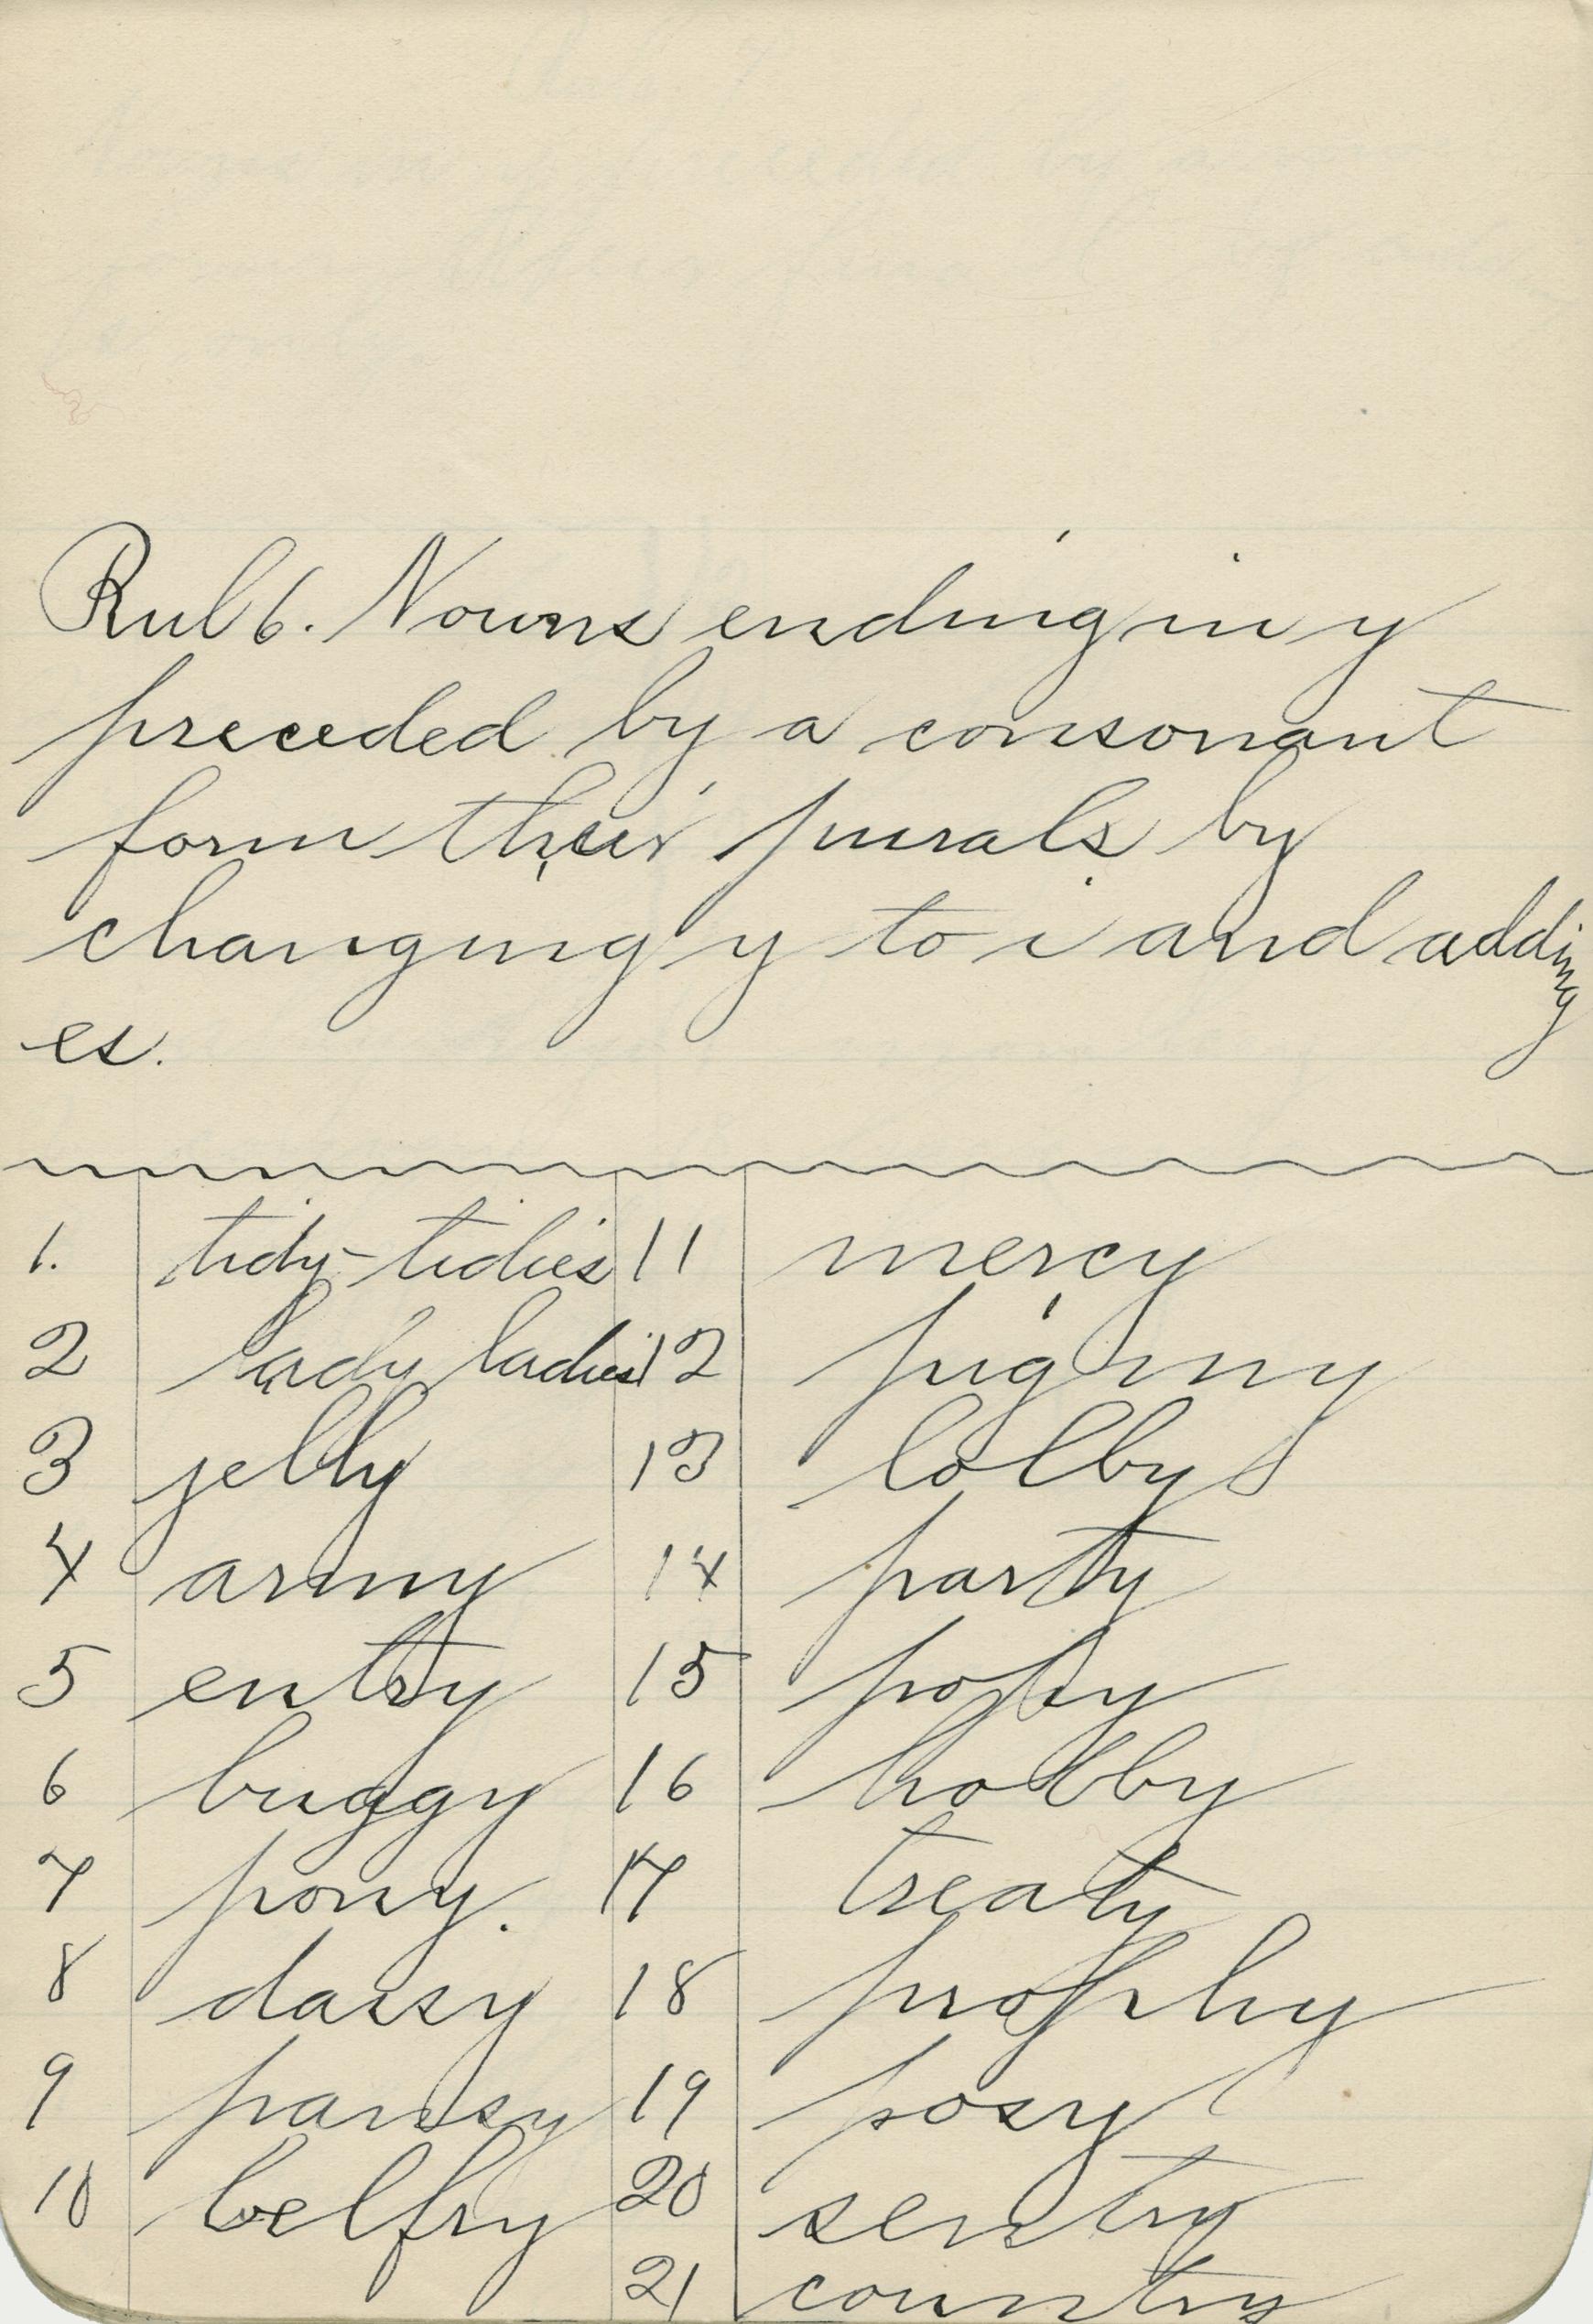 Rul 6. Nouns ending in y
preceded by a consonant
form their purals by
changing y to i and adding
es.
1. tidy-tidies 11 mercy
2 lady ladies 12 pigmy
3 jelly 13 lobby
4 army 14 party
5 entry 15 
6 buggy 16 hobby
7 pony. 17 treaty
8 daisy 18 
9 pansy 19 posy
10 belfry 20 sentry
21 country